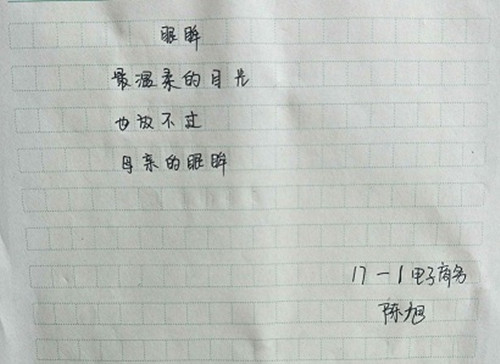 眼眸
最温柔的目光
也放不过
母亲的眼眸
17-1电子商务
陈旭